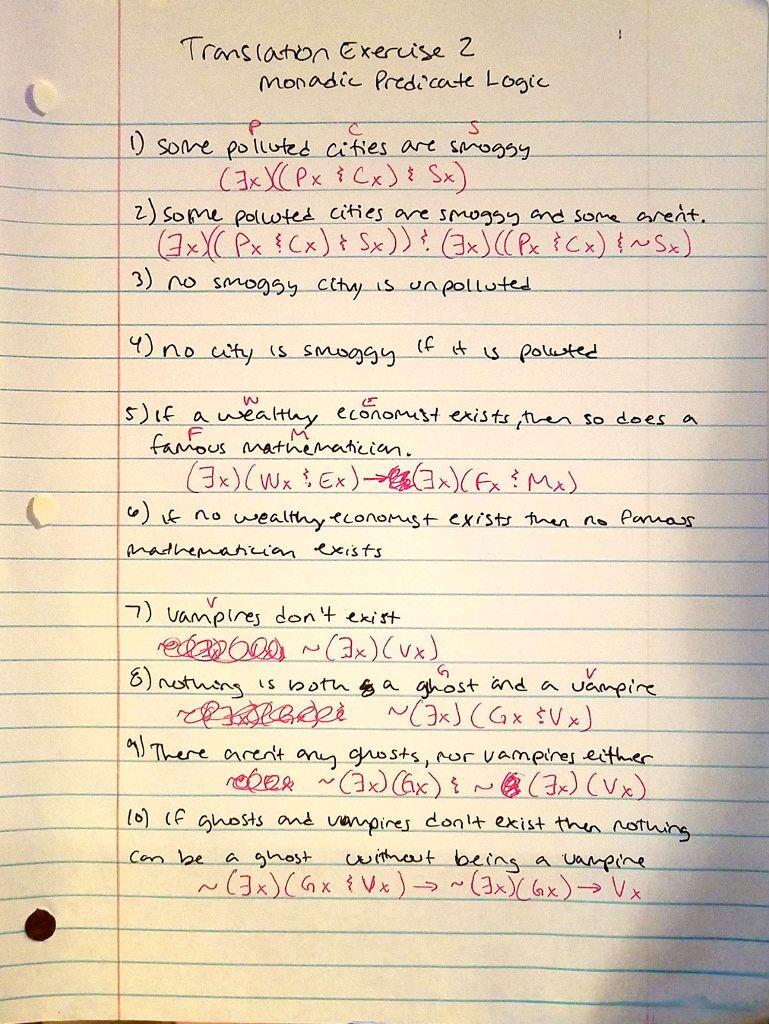 Translation Exercise 2
Monadic Predicate Logic
P C S
1) Some polluted cities are smoggy
(∃x)((Px & Cx) & Sx)
2) Some polluted cities are smoggy and some aren't.
(∃x)((Px & Cx) & Sx)) & (∃x)((Px & Cx) & ~Sx)
3) no smoggy city is unpolluted
4) no city is smoggy if it is polluted
W E
5) if a wealthy economist exists, then so does a
F M
famous mathematician.
(∃x)(Wx & Ex) → (∃x)(Fx & Mx)
6) if no wealthy economist exists then no famous
mathematician exists
V
7) vampires don't exist
~(∃x)(Vx)
G V
8) nothing is both a ghost and a vampire
~(∃x)(Gx & Vx)
9) There aren't any ghosts, nor vampires either
~(∃x)(Gx) & ~(∃x)(Vx)
10) if ghosts and vampires don't exist then nothing
can be a ghost without being a vampire
~(∃x)(Gx & Vx) → ~(∃x)(Gx) → Vx